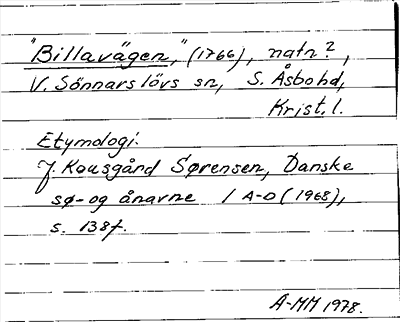 "Billavägen," (1766), natn?,
V. Sönnarslövs sn, S. Åsbohd,
Krist. l.
Etymologi:
J. Kousgård Sørensen, Danske
sø- og ånavne 1 A-D (1968),
s. 138f.
A-MM 1978.